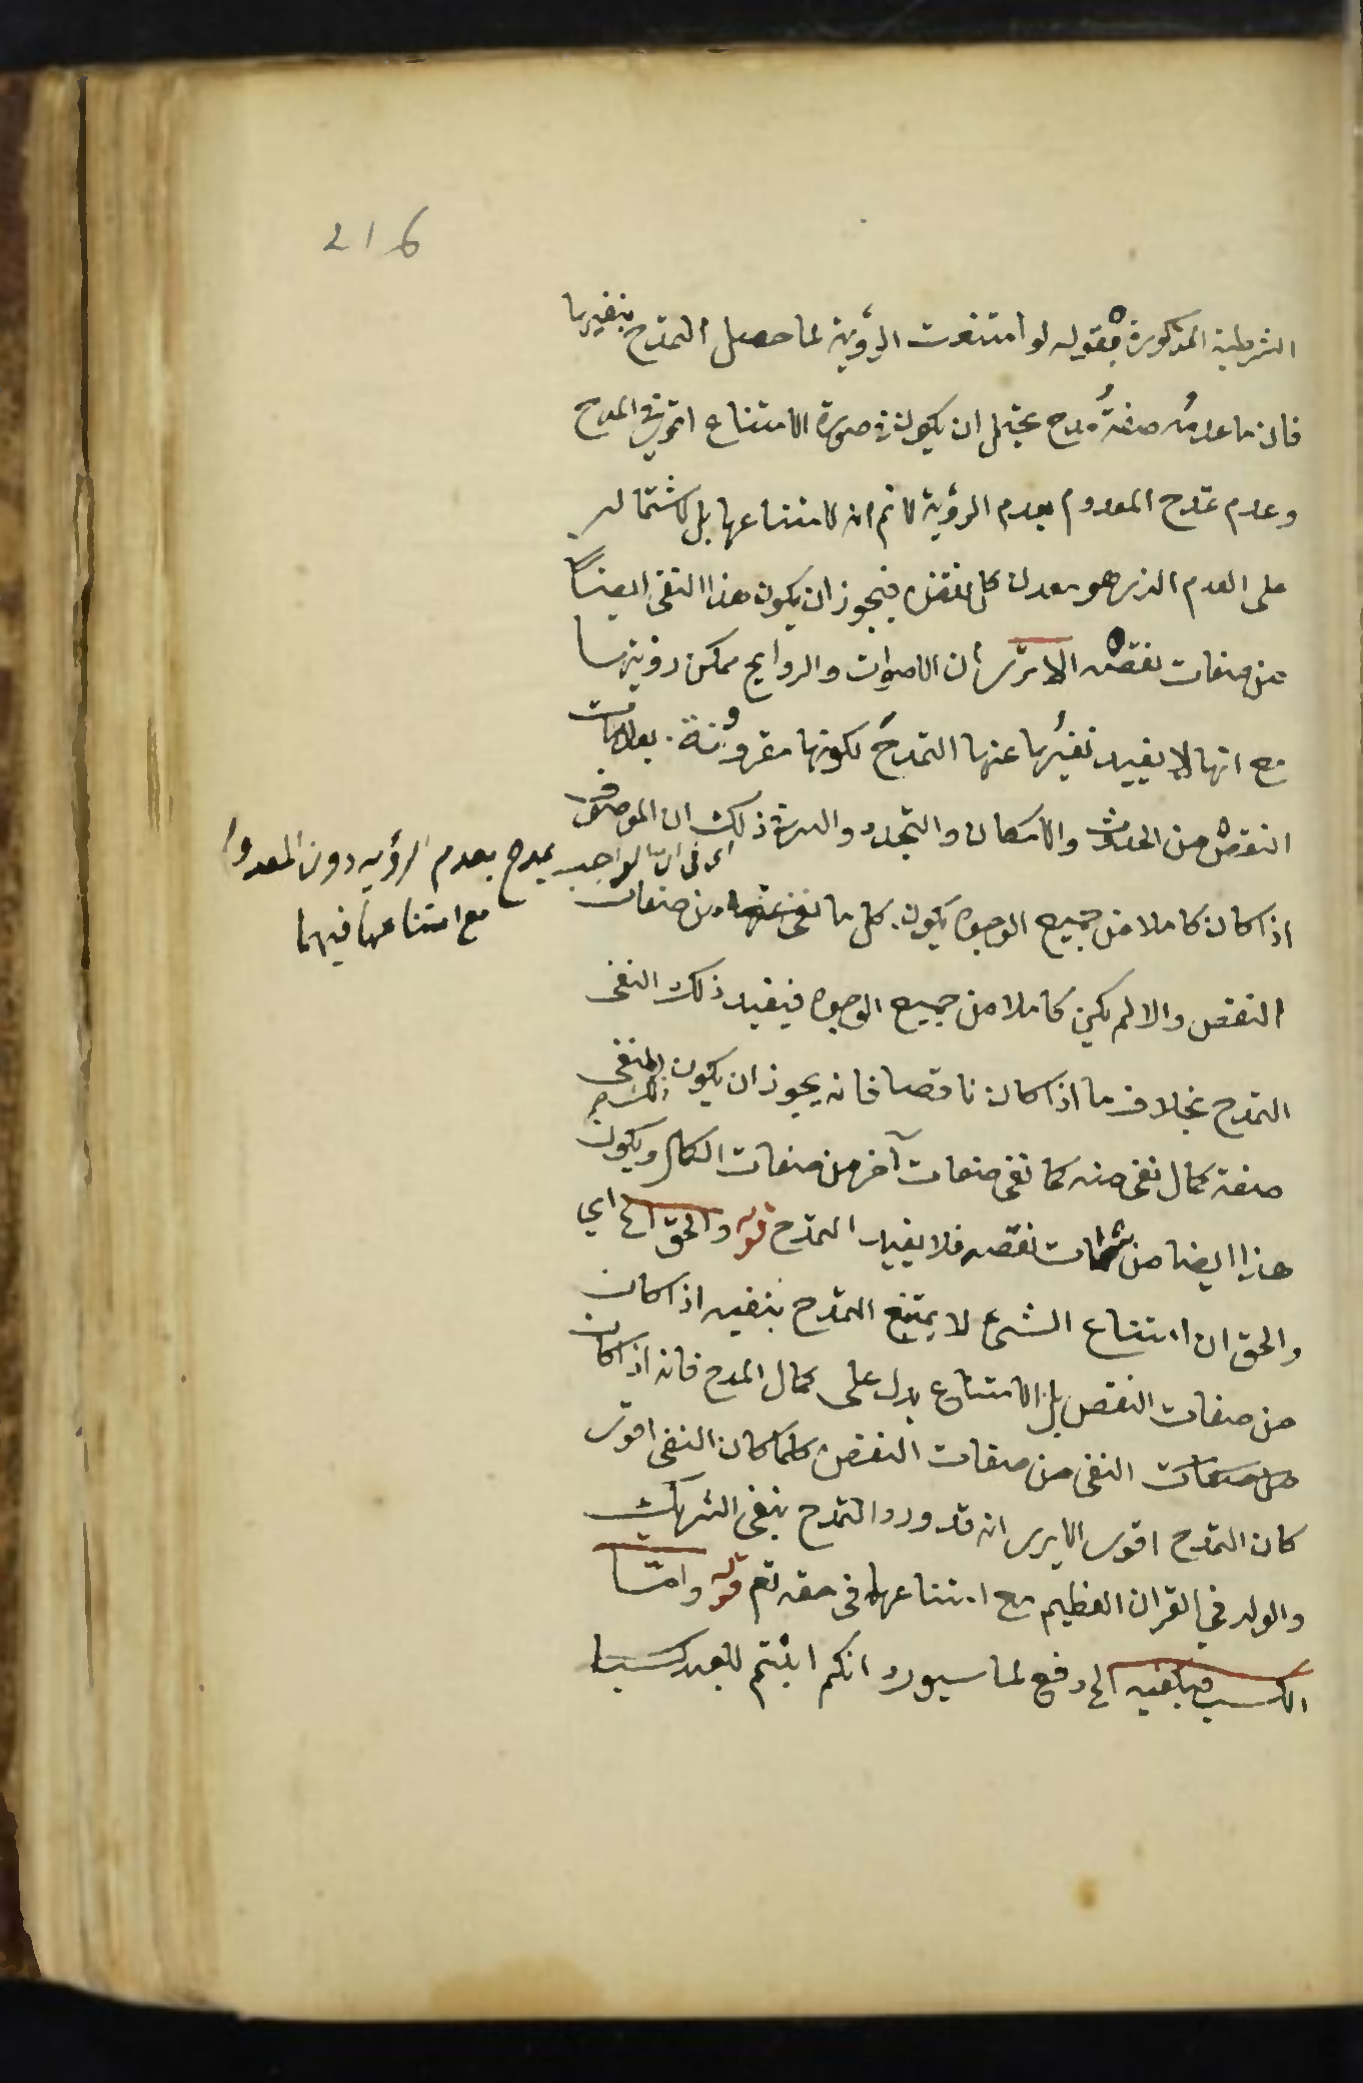 216
الشرطية المذكورة بقوله لو امتنعت الرؤية لما حصل التمدح بنفيها
فان ما عدمُه صفةُ مدح يحتمل ان يكون في صورة الامتناع اقوى في المدح
وعدم تمدح المعدوم بعدم الرؤية لا نم انه لامتناعها بل لاشتماله
على العدم الذى هو معدن كل نقص فيجوز ان يكون هذا النفى ايضاً
من صفات نقصه الا ترى ان الاصوات والروايح ممكن رؤيتها
مع انها لا يفيد نفيُها عنها التمدحَ لكونها مقرونة بعلامات
النقص من الحدوث والامكان والتجدد والسر في ذلك ان الموصوف
اذا كان كاملا من جميع الوجوه يكون كل ما نفى عنه من صفات
النقص والا لم يكن كاملا من جميع الوجوه فيفيد ذلك النفى
التمدح بخلاف ما اذا كان ناقصا فانه يجوز ان يكون ذلك المنفى
صفة كمال نفى منه كما نفى صفات آخر من صفات الكمال ويكون
هذا ايضا من سمات نقصه فلا يفيد التمدح قوله والحق الخ اي
والحق ان امتناع الشئ لا يمنع التمدح بنفيه اذا كان
من صفات النقص بل الامتناع يدل على كمال المدح فانه اذا كان
النفى من صفات النقص كلما كان النفى اقوى
كان التمدح اقوى الا يرى انه قد ورد التمدح بنفى الشريك
والولد في القران العظيم مع امتناعها فى حقه تع قوله وامّا
الكسب فيكفيه الخ دفع لما سيورد انكم اثبتم للعبد كسبا
اى فى ان الواجب يمدح بعدم الرؤيه دون المعدوم
مع امتناعها فيهما